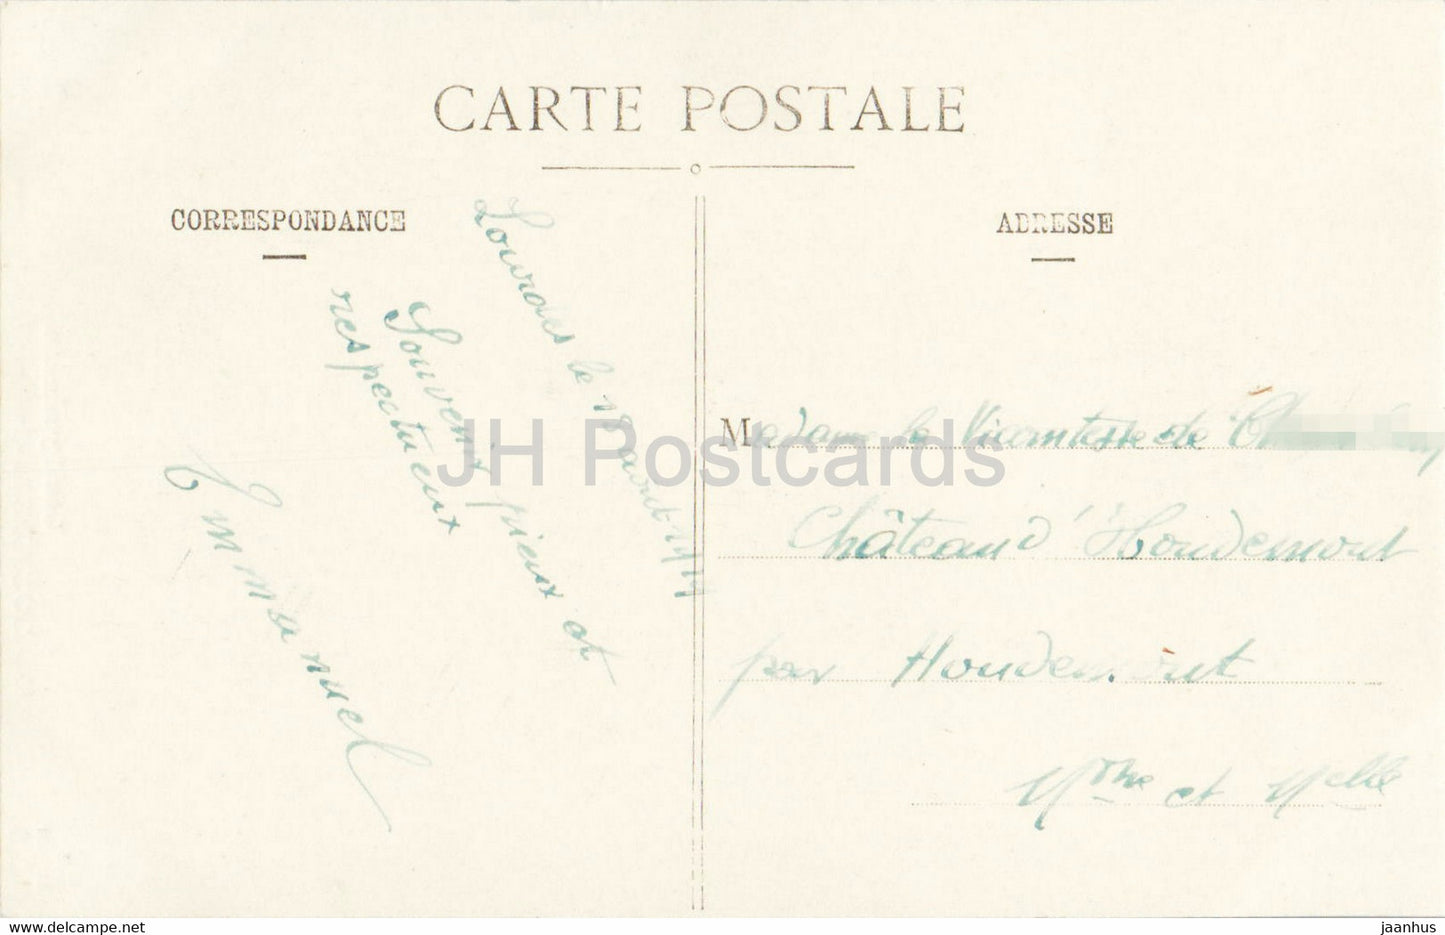 CARTE POSTALE
CORRESPONDANCE
ADRESSE
Lourdes le 18 août 1914
Souvenir pieux et
respectueux
Emmanuel
Madame la Vicomtesse de
Château d'Houdemont
par Houdemont
Mthe et Mlle
JH Postcards
www.delcampe.net
jaanhus